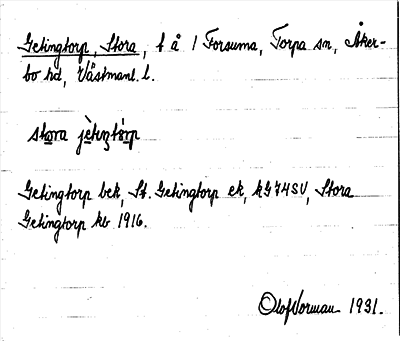 Getingtorp, Stora, t å 1 Forsuma, Torpa sn, Åker-
bo hd, Västmanl. l.
stora jètiŋtórp
Getingtorp bek, St. Getingtorp ek, kG74SV, Stora
Getingtorp kb 1916.
Olof Norman 1931.